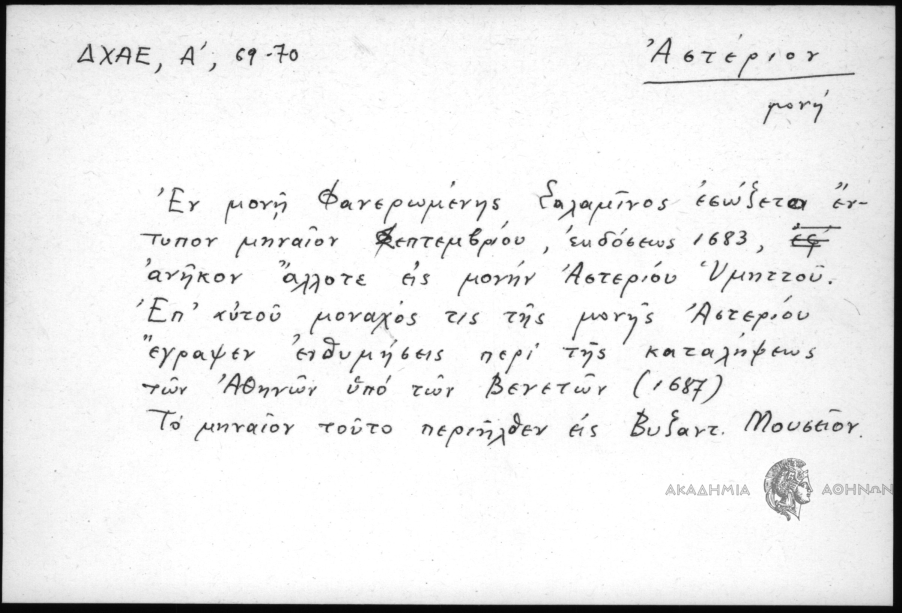 ΔΧΑΕ, Α', 69-70
Ἀστέριον
μονή
Ἐν μονῇ Φανερωμένης Σαλαμῖνος ἐσώζετο ἔν-
τυπον μηναῖον Σεπτεμβρίου, ἐκδόσεως 1683,
ἀνῆκον ἄλλοτε εἰς μονήν Ἀστερίου Ὑμηττοῦ.
Ἐπ' αὐτοῦ μοναχός τις τῆς μονῆς Ἀστερίου
ἔγραψεν ἐνθυμήσεις περί τῆς καταλήψεως
τῶν Ἀθηνῶν ὑπό τῶν Βενετῶν (1687)
Τό μηναῖον τοῦτο περιῆλθεν εἰς Βυζαντ. Μουσεῖον.
ΑΚΑΔΗΜΙΑ ΑΘΗΝΩΝ